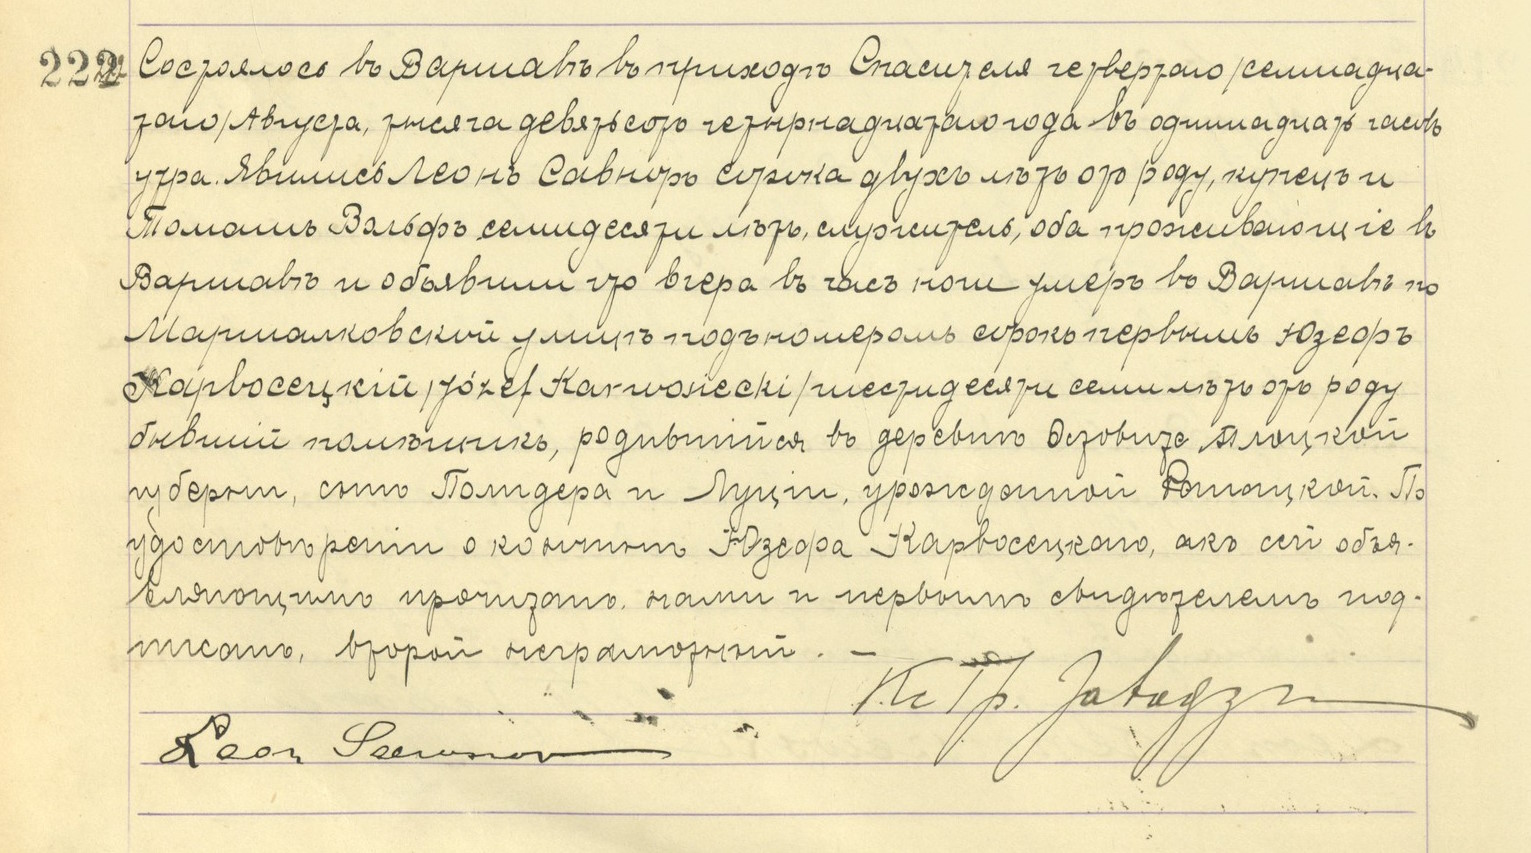 222 Состоялось въ Варшавѣ въ приходѣ Спасителя четвертаго /семнадца-
таго/ Августа, тысяча девятьсотъ четырнадцатаго года въ одиннадцать часовъ
утра. Явились Леонъ Савноръ сорока двухъ лѣтъ отъ роду, купецъ и
Томашъ Вольфъ семидесяти лѣтъ, служитель, оба проживающіе въ
Варшавѣ и объявили что вчера въ часъ ночи умеръ въ Варшавѣ по
Маршалковской улицѣ подъ номеромъ сорокъ первымъ Юзефъ
Карвосецкій /Józef Karwosiecki/ шестидесяти семи лѣтъ отъ роду
бывшій помѣщикъ, родившійся въ деревнѣ Плоцкой
губерніи, сынъ Полидера и Луціи, урожденной По
удостовѣреніи о кончинѣ Юзефа Карвосецкаго, актъ сей объя-
вляющимъ прочитанъ нами и первымъ свидѣтелемъ под-
писанъ, второй неграмотный. —
Кс Гр.
Leon